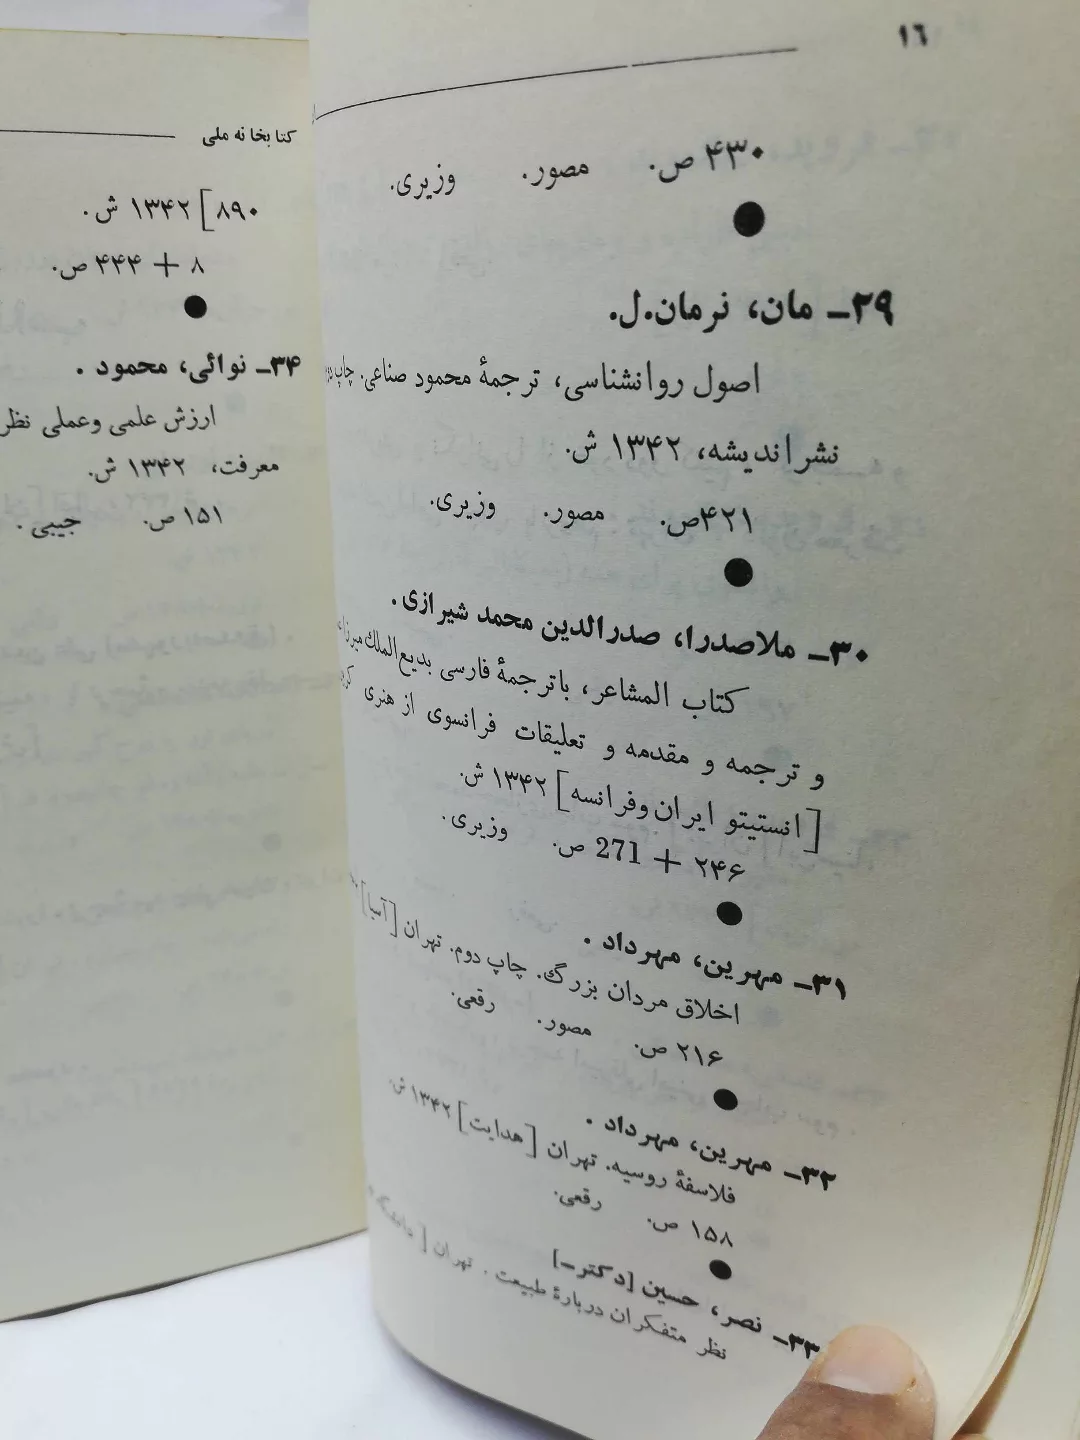 ۱۶
۴۳۰ ص. مصور. وزیری.
۲۹ــ مان، نرمان.ل.
اصول روانشناسی، ترجمهٔ محمود صناعی. چاپ
نشراندیشه، ۱۳۴۲ ش.
۴۲۱ص. مصور. وزیری.
۳۰ــ ملاصدرا، صدرالدین محمد شیرازی.
کتاب المشاعر، باترجمهٔ فارسی بدیع‌الملک میرزا
و ترجمه و مقدمه و تعلیقات فرانسوی از هنری
[انستیتو ایران وفرانسه] ۱۳۴۲ ش.
۲۴۶ + 271 ص. وزیری.
۳۱ــ مهرین، مهرداد.
اخلاق مردان بزرگ. چاپ دوم. تهران [آسیا]
۲۱۶ ص. مصور. رقعی.
۳۲ــ مهرین، مهرداد.
فلاسفهٔ روسیه. تهران [هدایت] ۱۳۴۲ ش.
۱۵۸ ص. رقعی.
۳۳ــ نصر، حسین [دکتر ــ]
نظر متفکران دربارهٔ طبیعت. تهران [
کتابخانه ملی
۸۹۰] ۱۳۴۲ ش.
۸ + ۴۴۴ ص.
۳۴ــ نوائی، محمود.
ارزش علمی وعملی نظر
معرفت، ۱۳۴۲ ش.
۱۵۱ ص. جیبی.